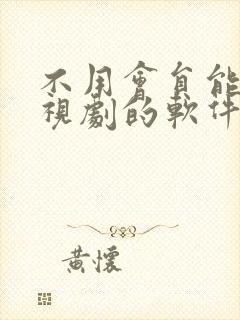 不用會員能
視劇的軟件
黃懷